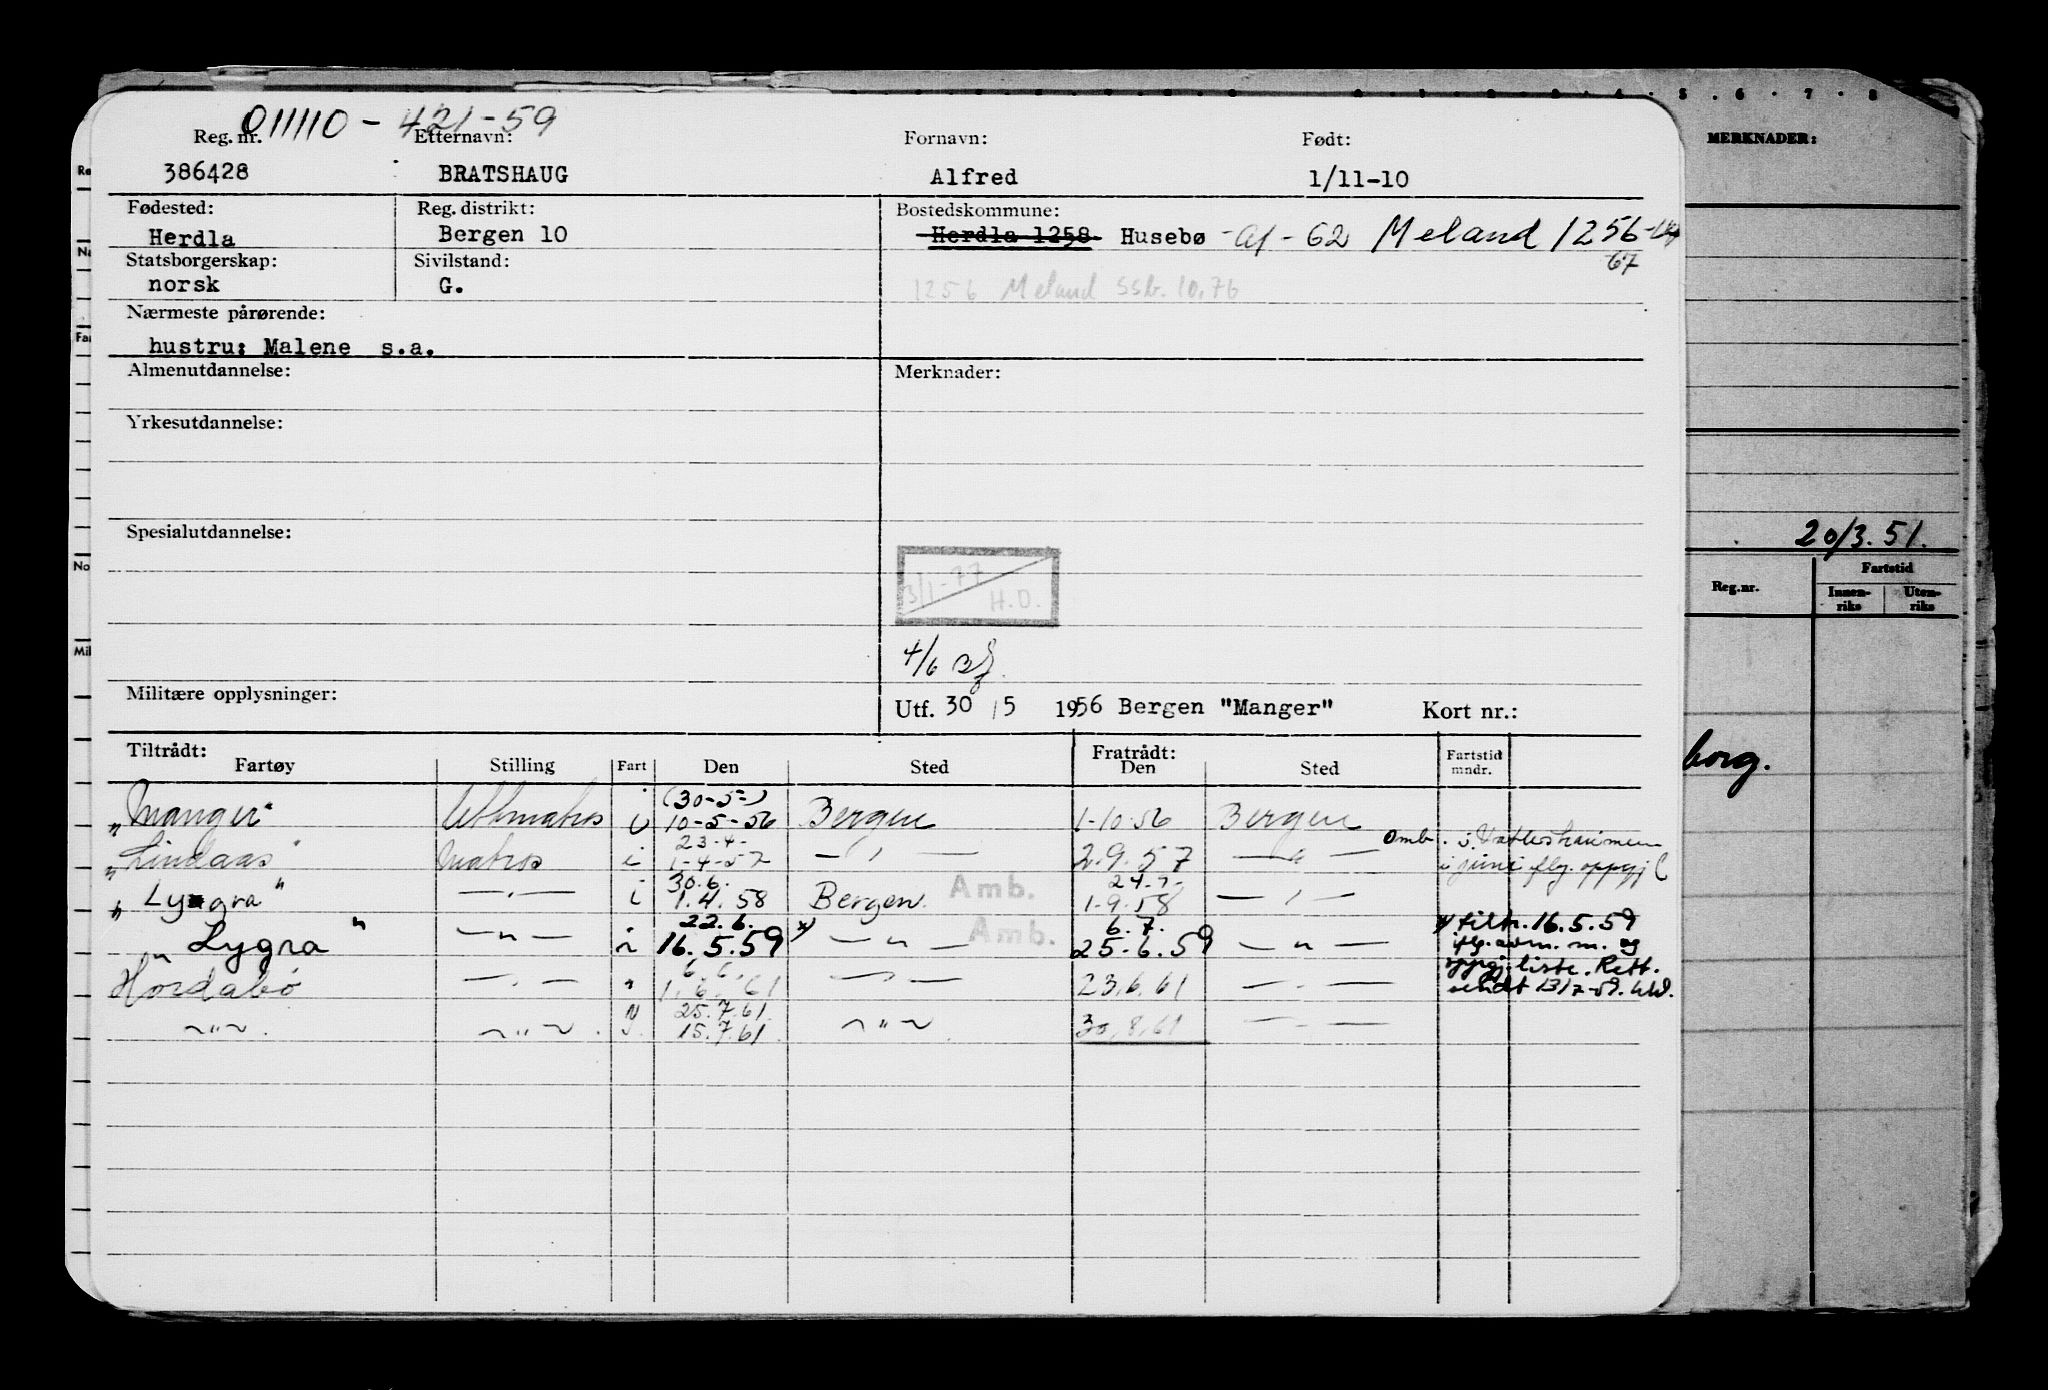 011110-421-59
Reg. nr. Etternavn: Fornavn: Født:
386428 BRATSHAUG Alfred 1/11-10
MERKNADER:
Fødested: Reg. distrikt: Bostedskommune:
Herdla Bergen 10 Herdla 1258 Husebø - af - 62 Meland 1256
67
Statsborgerskap: Sivilstand:
norsk G. 1256 Meland SSb. 10.76
Nærmeste pårørende:
hustru: Malene s.a.
Almenutdannelse: Merknader:
Yrkesutdannelse:
Spesialutdannelse:
20/3.51.
3/1-77
H.O.
Reg.nr. Fartstid
Innenriks Utenriks
4/6
Militære opplysninger: Utf. 30/5 1956 Bergen "Manger" Kort nr.:
Tiltrådt: Fratrådt:
Fartøy Stilling Fart Den Sted Den Sted Fartstid mndr.
borg.
(30-5-)
"Manger" i 10-5-56 Bergen 1-10-56 Bergen
23-4-
"Lindaas" Matros i 1-4-57 — " — 2.9.57 — " — Omb.
i juni flg. oppgj
30.6. 24-7-
"Lygra" — " — i 1.4.58 Bergen Amb. 1-9-58 — " —
22.6. 6.7.
"Lygra" — " — i 16.5.59 x) — " — Amb. 25.6.59 — " — x) tiltr. 16.5.59
iflg. avm. m. og
oppgj. liste. Rett.
sendt 13/7-59.
6.6.
Hordabø — " — " 1.6.61 — " — 23.6.61 — " —
25.7.61
— " — . — " — . 15.7.61. — " — . 30.8.61 — " —